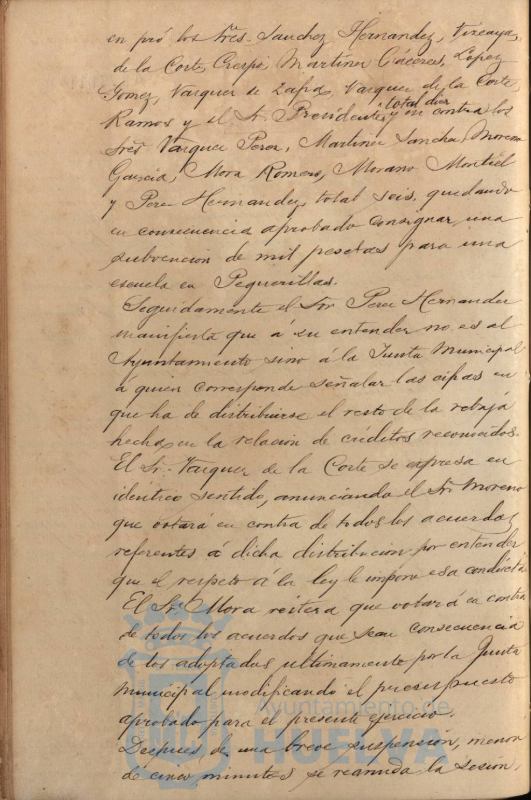 en pró los Sres. Sanchez Hernandez, Vizcaya,
de la Corte, Crespo, Martinez Cáceres, Lopez
Gomez, Vazquez de Zafra, Vazquez de la Corte,
Ramos y el Sr. Presidente, total diez y en contra los
Sres Vazquez Perez, Martinez Sancha, Moreno
Garcia, Mora Romero, Morano Montiel
y Perez Hernandez, total seis, quedando
en consecuencia aprobado consignar una
subvencion de mil pesetas para una
escuela en Peguerillas.
Seguidamente el Sr. Perez Hernandez
manifiesta que á su entender no es al
Ayuntamiento sino á la Junta Municipal
á quien corresponde señalar las cifras en
que ha de distribuirse el resto de la rebaja
hecha en la relacion de créditos reconocidos.
El Sr. Vazquez de la Corte se expresa en
idéntico sentido, anunciando el Sr. Moreno
que votará en contra de todos los acuerdos
referentes á dicha distribucion por entender
que el respeto á la ley le impone esa conducta
El Sr. Mora reitera que votará en contra
de todos los acuerdos que sean consecuencia
de los adoptados ultimamente por la Junta
Municipal modificando el presupuesto
aprobado para el presente ejercicio.
Despues de una breve suspension, menor
de cinco minutos se reanuda la sesion,
Ayuntamiento de
HUELVA